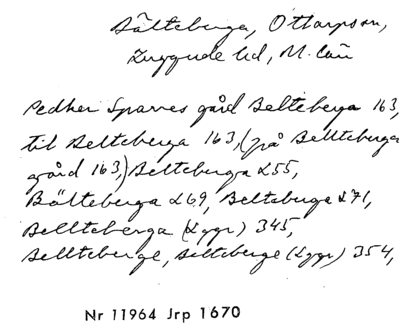 Bälteberga, Ottarps sn,
Luggude hd, M. län
Pedher Sparres gård Belteberga 163,
til Belteberga 163, (på Bellteberga
gård 163,) Belteberga 255,
Bälteberga 269, Belteberga 271,
Bellteberga (Lggr) 345,
Bellteberge, Belteberge (Lggr) 354,
Nr 11964 Jrp 1670